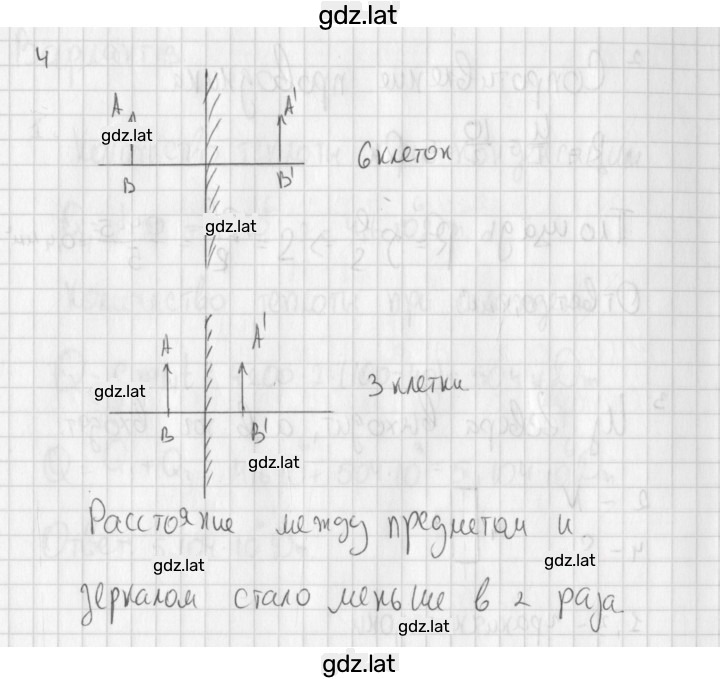 gdz.lat
4
A A'
gdz.lat
B B'
6 клеток
gdz.lat
A A'
gdz.lat
3 клетки
B B'
gdz.lat
Расстояние между предметом и
gdz.lat
gdz.lat
зеркалом стало меньше в 2 раза
gdz.lat
gdz.lat